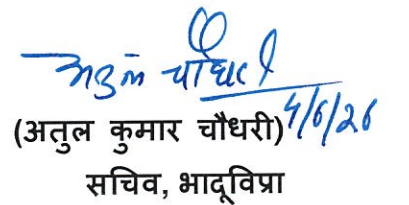 अतुल चौधरी
4/6/26
(अतुल कुमार चौधरी)
सचिव, भादूविप्रा